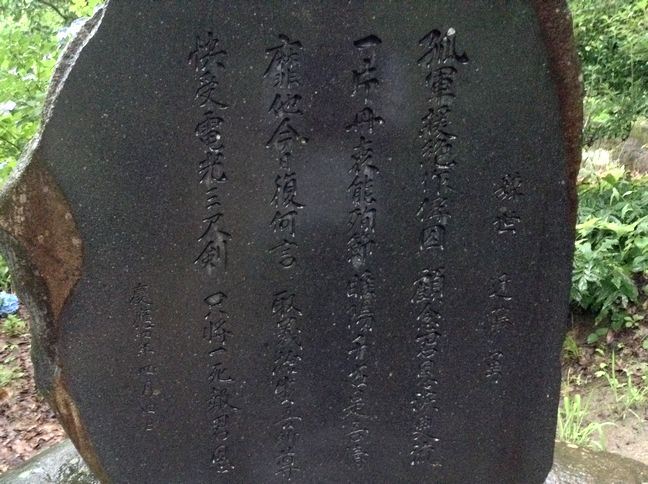 辞世　近藤勇
孤軍援絶作俘囚　顧念君恩涙更流
一片丹衷能殉節　睢陽千古是吾儔
靡他今日復何言　取義捨生吾所尊
快受電光三尺剣　只将一死報君恩
慶應四年四月